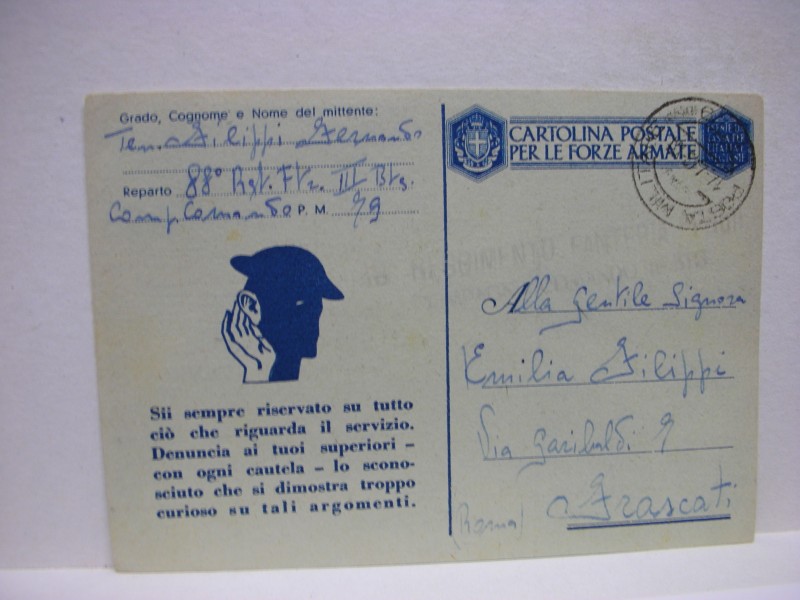 Grado, Cognome e Nome del mittente:
Ten. Filippi Fernando
Reparto 88° Rgt. Ftr. III Btg.
Comp. Comando P. M. 79
Sii sempre riservato su tutto
ciò che riguarda il servizio.
Denuncia ai tuoi superiori –
con ogni cautela – lo scono-
sciuto che si dimostra troppo
curioso su tali argomenti.
CARTOLINA POSTALE
PER LE FORZE ARMATE
POSTA MILIT
REGGIMENTO FANTERIA
Alla Gentile Signora
Emilia Filippi
Via Garibaldi 9
Frascati
(Roma)